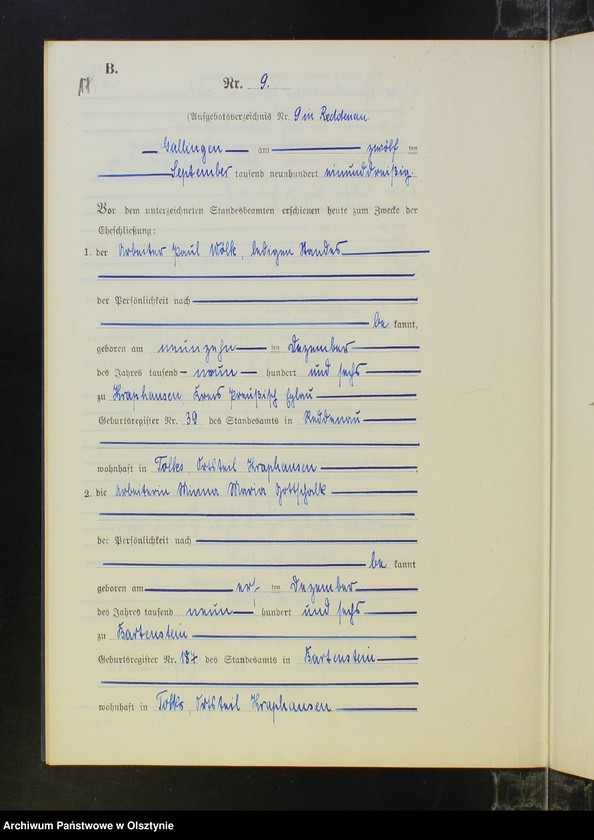 B.
Nr. 9.
(Aufgebotsverzeichnis Nr. 9 in Reddenau.
Gallingen am zwölf ten
September tausend neunhundert einunddreißig.
Vor dem unterzeichneten Standesbeamten erschienen heute zum Zwecke der
Eheschließung:
1. der Arbeiter Paul Wölk, ledigen Standes
der Persönlichkeit nach
be kannt,
geboren am neunzehn ten Dezember
des Jahres tausend neun hundert und sechs
zu Kraphausen, Kreis Preußisch Eylau
Geburtsregister Nr. 39 des Standesamts in Reddenau
wohnhaft in Tolks, Ortsteil Kraphausen
2. die Arbeiterin Minna Maria Gottschalk
der Persönlichkeit nach
be kannt
geboren am ten Dezember
des Jahres tausend neun hundert und sechs
zu Bartenstein
Geburtsregister Nr. 187 des Standesamts in Bartenstein
wohnhaft in Tolks, Ortsteil Kraphausen
Archiwum Państwowe w Olsztynie